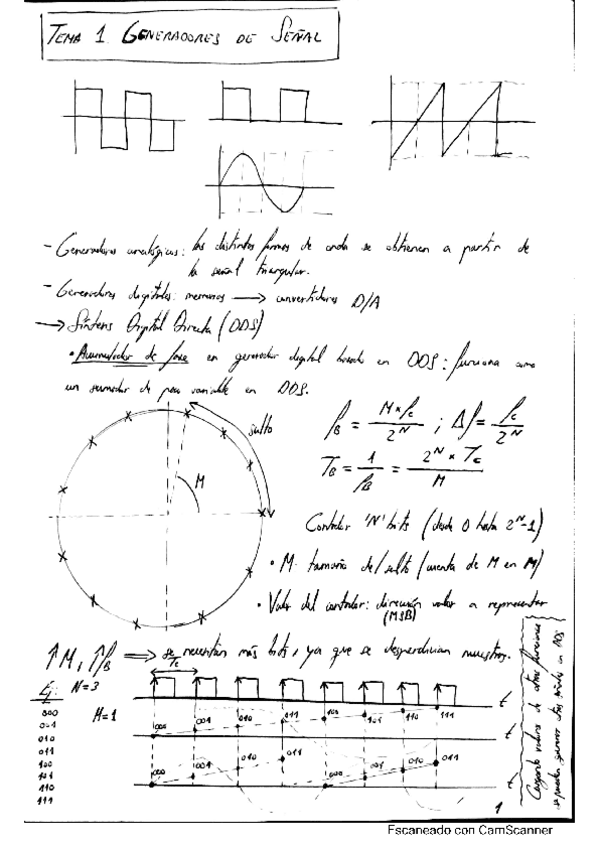 TEMA 1. GENERADORES DE SEÑAL
- Generadores analógicos: las distintas formas de onda se obtienen a partir de
la señal triangular.
- Generadores digitales: memorias → convertidores D/A
→ Síntesis Digital Directa (DDS)
• Acumulador de fase en generador digital basado en DDS: funciona como
un sumador de paso variable en DDS.
salto
M
f_B = M×f_c / 2^N ; Δf = f_c / 2^N
T_B = 1 / f_B = 2^N × T_c / M
Contador 'N' bits (desde 0 hasta 2^N-1)
• M: tamaño del salto (cuenta de M en M)
• Valor del contador: dirección valor a representar
(MSB)
↑M, ↑f_B ⇒ se necesitan más bits, ya que se desperdician muestras.
Ej: N=3
M=1
000
001
010
011
100
101
110
111
Tc
000 001 010 011 100 101 110 111
t
000 001 010 011 000 001 010 011
t
Cargando valores de otras funciones
se pueden generar otras señales en DDS
1
Escaneado con CamScanner